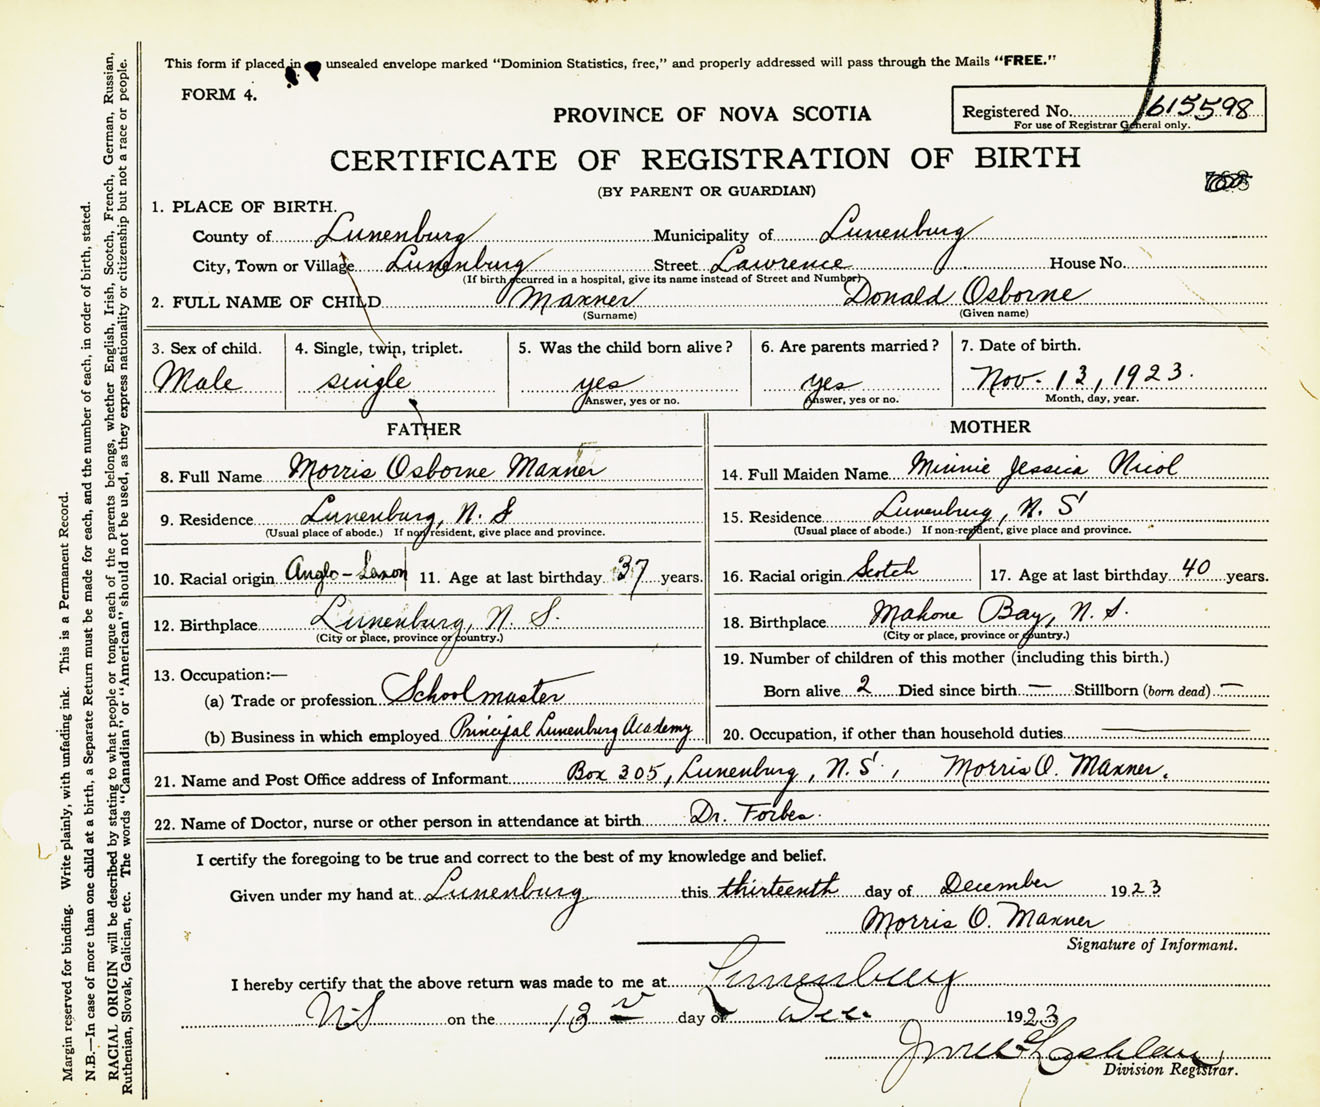 This form if placed in unsealed envelope marked "Dominion Statistics, free," and properly addressed will pass through the Mails "FREE."
FORM 4.
PROVINCE OF NOVA SCOTIA
Registered No. 615598
For use of Registrar General only.
CERTIFICATE OF REGISTRATION OF BIRTH
(BY PARENT OR GUARDIAN)
1. PLACE OF BIRTH.
County of Lunenburg Municipality of Lunenburg
City, Town or Village Lunenburg Street Lawrence House No.
(If birth occurred in a hospital, give its name instead of Street and Number)
2. FULL NAME OF CHILD Maxner Donald Osborne
(Surname) (Given name)
3. Sex of child. 4. Single, twin, triplet. 5. Was the child born alive? 6. Are parents married? 7. Date of birth.
Male single yes yes Nov. 13, 1923.
Answer, yes or no. Answer, yes or no. Month, day, year.
FATHER MOTHER
8. Full Name Morris Osborne Maxner 14. Full Maiden Name Minnie Jessica Nicol
9. Residence Lunenburg, N. S 15. Residence Lunenburg, N. S
(Usual place of abode.) If non-resident, give place and province. (Usual place of abode.) If non-resident, give place and province.
10. Racial origin Anglo-Saxon 11. Age at last birthday 37 years. 16. Racial origin Scotch 17. Age at last birthday 40 years.
12. Birthplace Lunenburg, N. S. 18. Birthplace Mahone Bay, N. S.
(City or place, province or country.) (City or place, province or country.)
13. Occupation:— 19. Number of children of this mother (including this birth.)
(a) Trade or profession Schoolmaster Born alive 2 Died since birth — Stillborn (born dead) —
(b) Business in which employed Principal Lunenburg Academy 20. Occupation, if other than household duties
21. Name and Post Office address of Informant Box 305, Lunenburg, N. S., Morris O. Maxner.
22. Name of Doctor, nurse or other person in attendance at birth Dr. Forbes.
I certify the foregoing to be true and correct to the best of my knowledge and belief.
Given under my hand at Lunenburg this thirteenth day of December 1923
Morris O. Maxner
Signature of Informant.
I hereby certify that the above return was made to me at Lunenburg
NS on the 13 day of Dec. 1923
Division Registrar.
Margin reserved for binding. Write plainly, with unfading ink. This is a Permanent Record.
N.B.—In case of more than one child at a birth, a Separate Return must be made for each, and the number of each, in order of birth, stated.
RACIAL ORIGIN will be described by stating to what people or tongue each of the parents belongs, whether English, Irish, Scotch, French, German, Russian,
Ruthenian, Slovak, Galician, etc. The words "Canadian" or "American" should not be used, as they express nationality or citizenship but not a race or people.